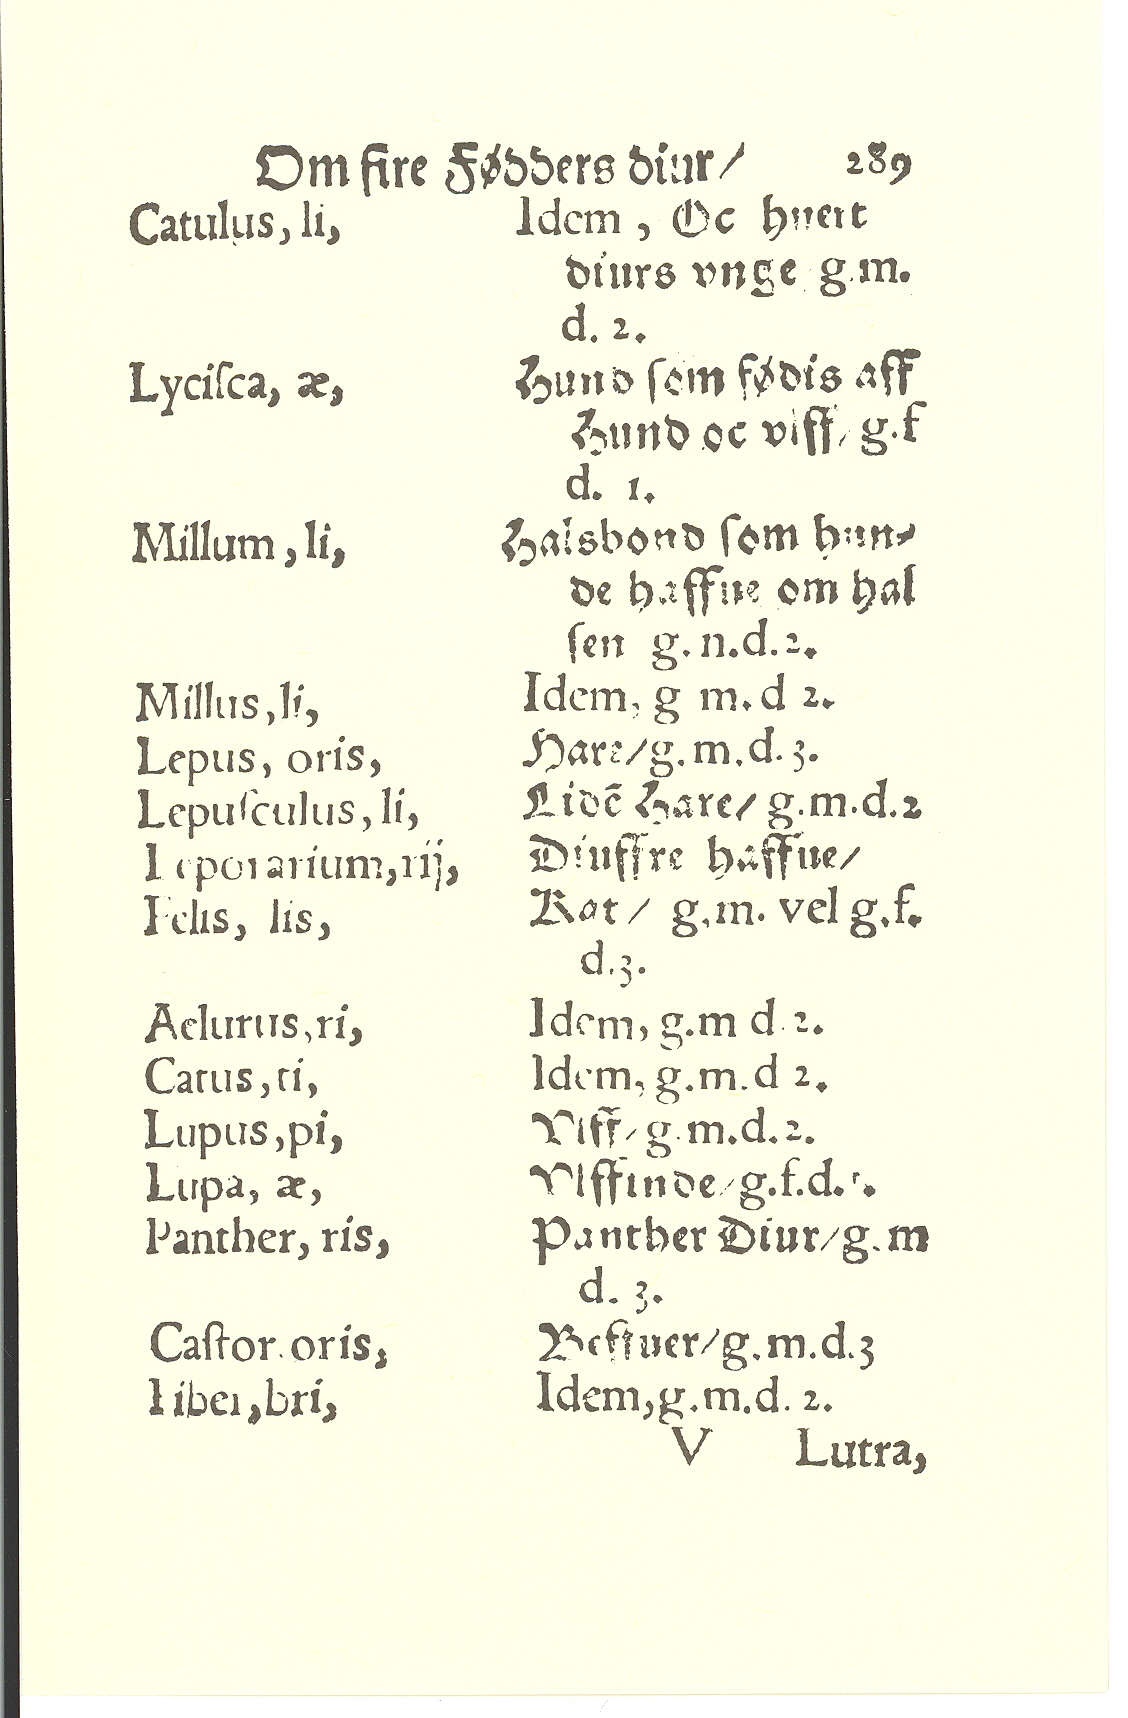 Om fire Fødders diur/ 289
Catulus, li, Idem, Oc huert
diurs vnge g.m.
d. 2.
Lyciſca, æ, Hund ſom fødis aff
Hund oc vlff/ g.f
d. 1.
Millum, li, Halsbond ſom hun⸗
de haffue om hal
ſen g.n.d.2.
Millus, li, Idem, g m.d 2.
Lepus, oris, Hare/g.m.d.3.
Lepuſculus, li, Lidẽ Hare/ g.m.d.2
Leporarium, rij, Diuffre haffue/
Felis, lis, Kat/ g.m. vel g.f.
d.3.
Aelurus, ri, Idem, g.m d 2.
Catus, ti, Idem, g.m.d 2.
Lupus, pi, Vlff/g.m.d.2.
Lupa, æ, Vlffinde/g.f.d.1.
Panther, ris, Panther Diur/g.m
d. 3.
Caſtor. oris, Beffuer/g.m.d.3
Fiber, bri, Idem,g.m.d. 2.
V Lutra,